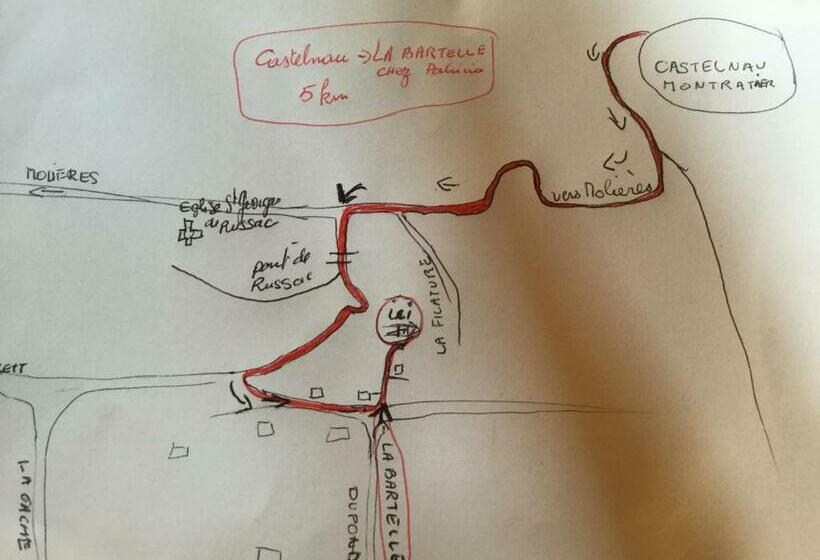 Castelnau → LA BARTELLE
CHEZ Patricia
5 km
CASTELNAU
MONTRATIER
MOLIÈRES
vers Molières
Eglise St
de Russac
pont de
Russac
LA FILATURE
ici
LA GACHE
LA BARTELLE